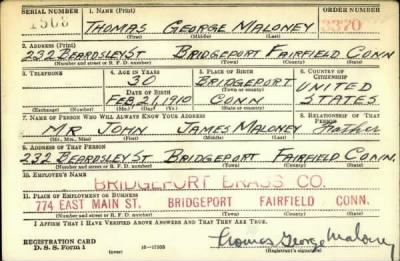 SERIAL NUMBER 1. NAME (Print) ORDER NUMBER
1508 THOMAS GEORGE MALONEY 3370
(First) (Middle) (Last)
2. ADDRESS (Print)
232 BEARDSLEY ST BRIDGEPORT FAIRFIELD CONN
(Number and street or R. F. D. number) (Town) (County) (State)
3. TELEPHONE 4. AGE IN YEARS 5. PLACE OF BIRTH 6. COUNTRY OF CITIZENSHIP
30 BRIDGEPORT UNITED
DATE OF BIRTH (Town or county)
FEB 21, 1910 CONN STATES
(Exchange) (Number) (Mo.) (Day) (Yr.) (State or country)
7. NAME OF PERSON WHO WILL ALWAYS KNOW YOUR ADDRESS 8. RELATIONSHIP OF THAT PERSON
MR JOHN JAMES MALONEY Father
(Mr., Mrs., Miss) (First) (Middle) (Last)
9. ADDRESS OF THAT PERSON
232 BEARDSLEY ST BRIDGEPORT FAIRFIELD CONN.
(Number and street or R. F. D. number) (Town) (County) (State)
10. EMPLOYER'S NAME
BRIDGEPORT BRASS CO.
11. PLACE OF EMPLOYMENT OR BUSINESS
774 EAST MAIN ST. BRIDGEPORT FAIRFIELD CONN.
(Number and street or R. F. D. number) (Town) (County) (State)
I AFFIRM THAT I HAVE VERIFIED ABOVE ANSWERS AND THAT THEY ARE TRUE.
REGISTRATION CARD
D. S. S. Form 1 (over) 16—17105 Thomas George Maloney
(Registrant's signature)